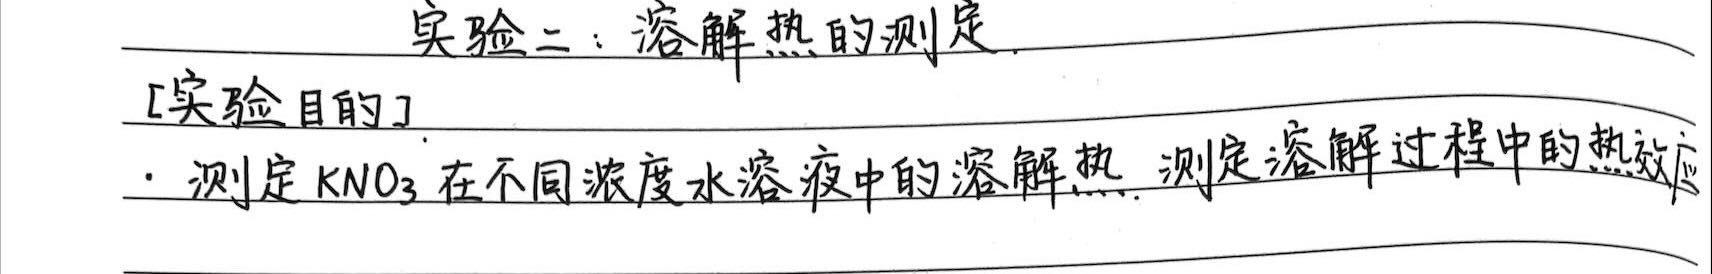 实验二：溶解热的测定.
[实验目的].
· 测定KNO3在不同浓度水溶液中的溶解热. 测定溶解过程中的热效应